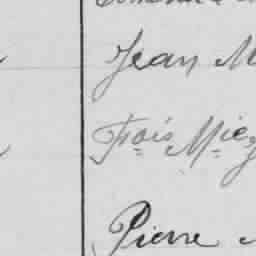 Jean M
Fois Mie
Pierre